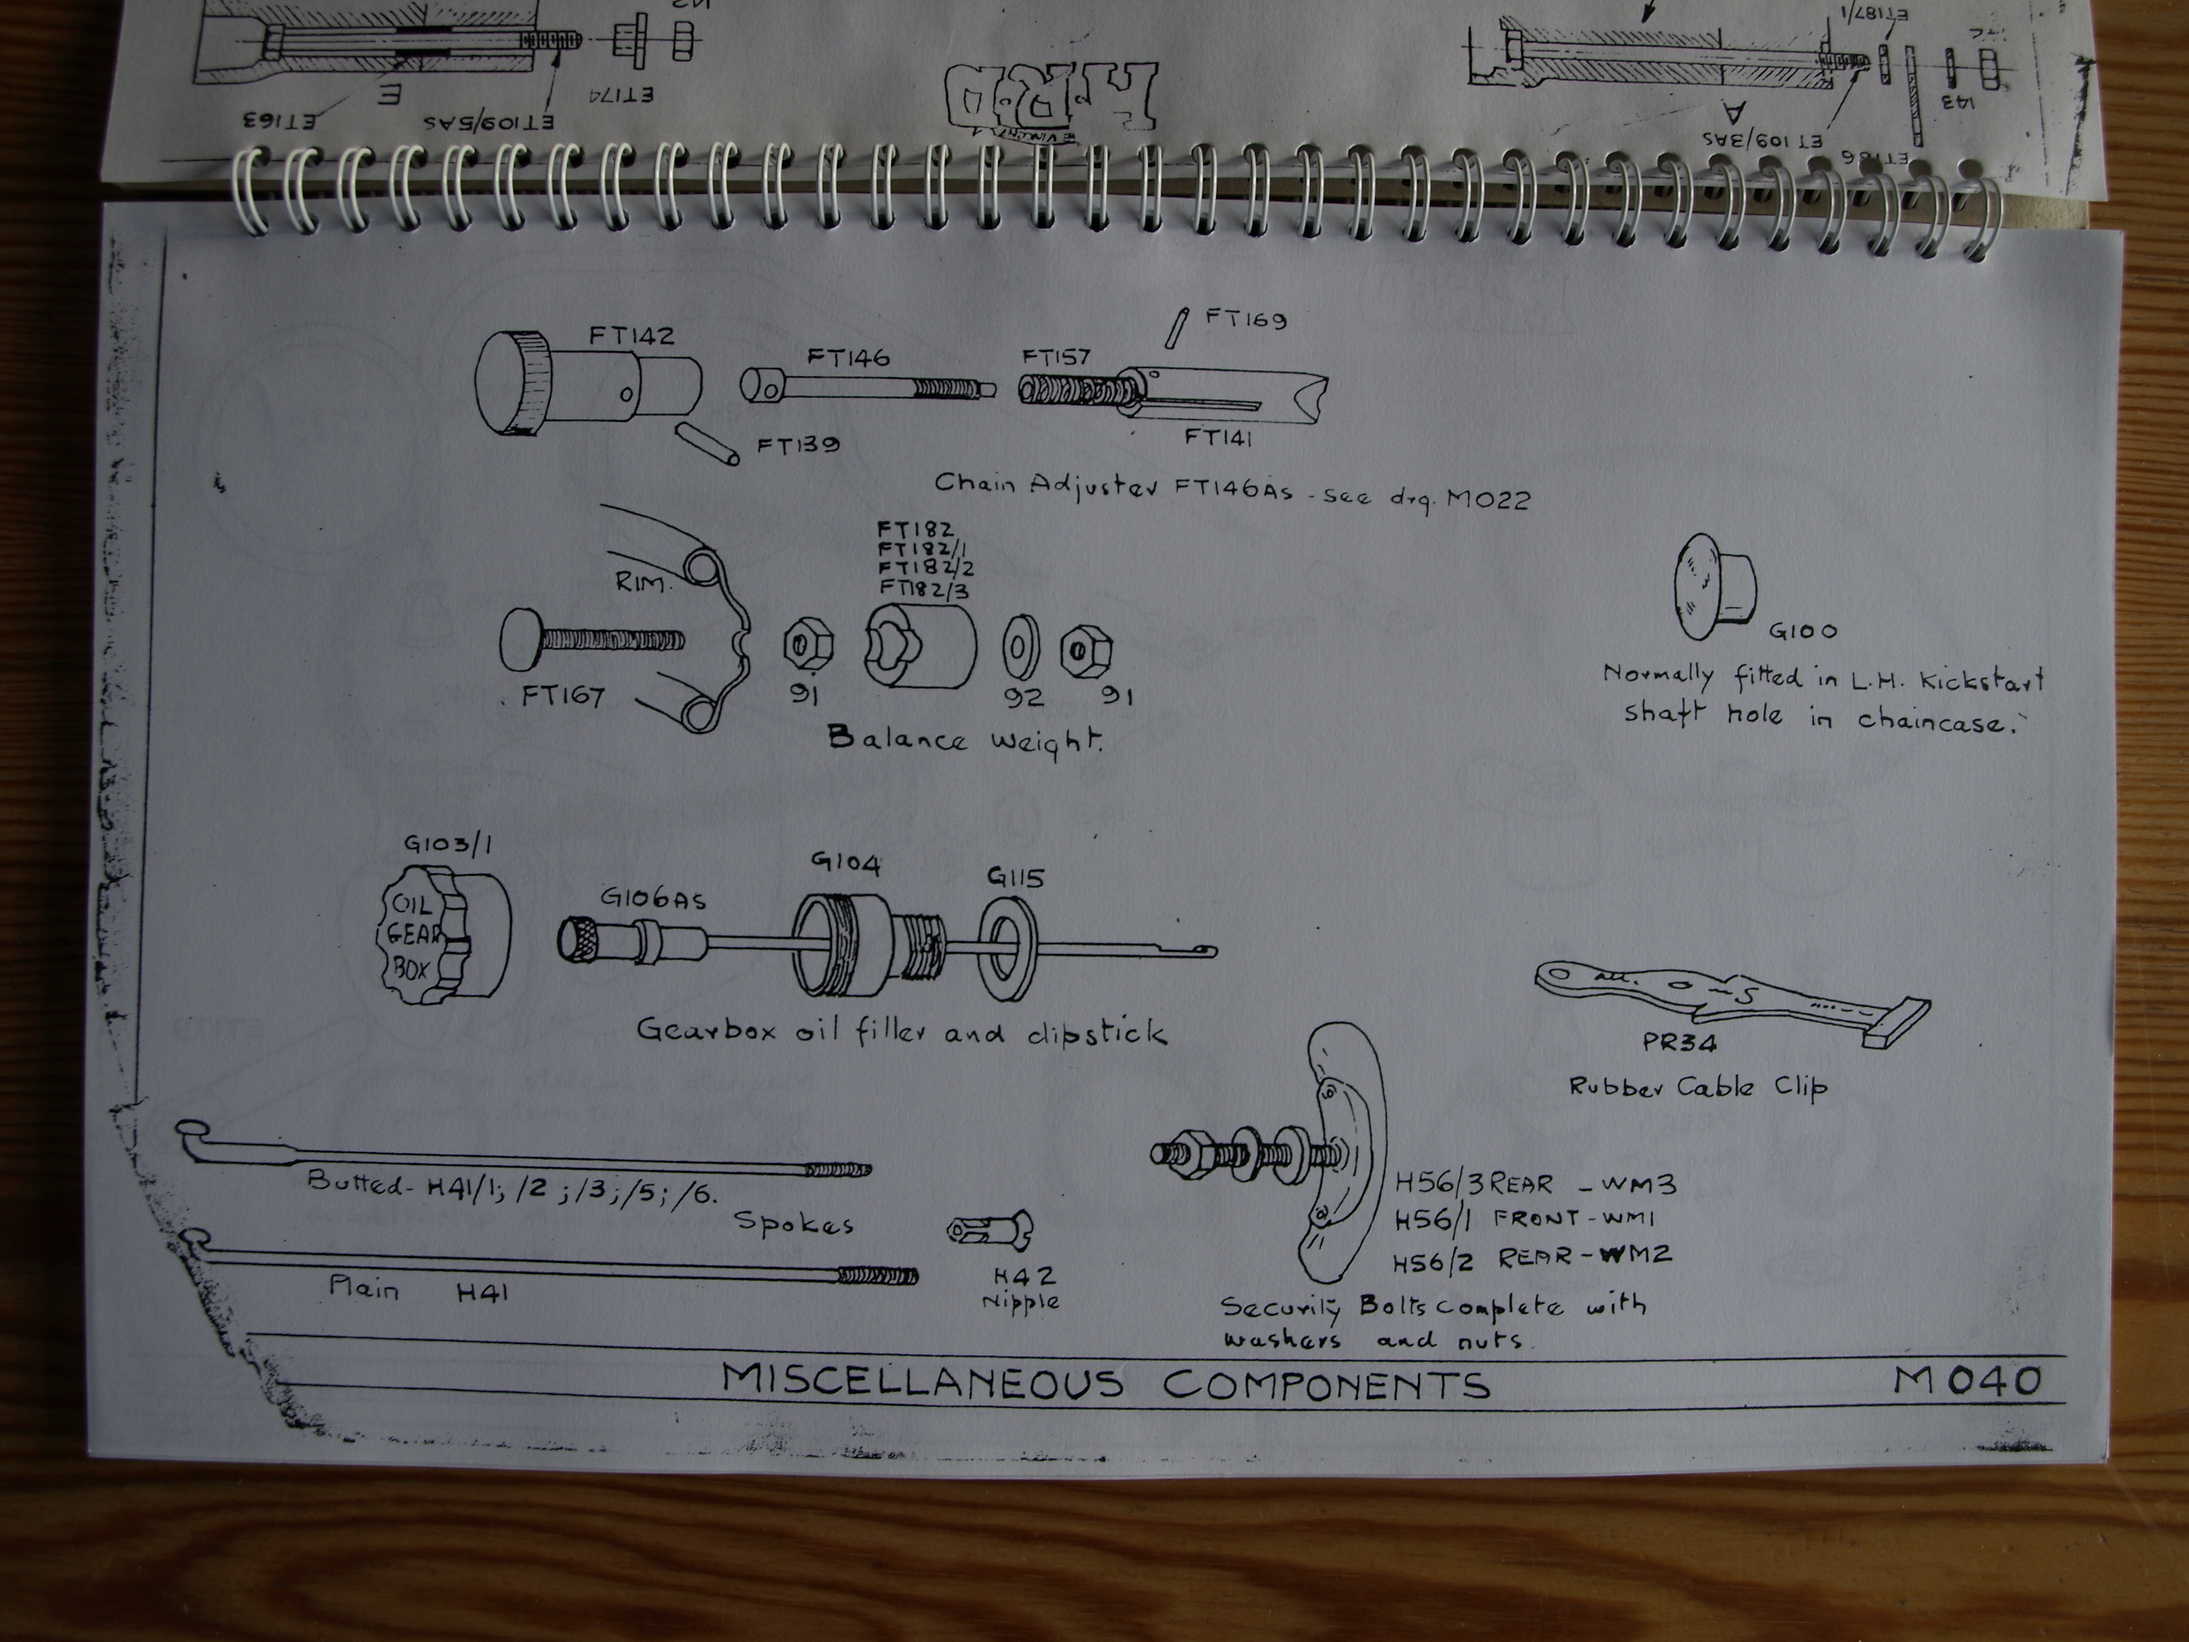 ET163
E
ET109/5AS
ET174
H.R.D
A
ET109/3AS
ET187/1
143
FT142
FT146
FT157
FT169
FT139
FT141
Chain Adjuster FT146AS - see drg. M022
RIM.
FT182
FT182/1
FT182/2
FT182/3
FT167
91
92
91
Balance weight.
G100
Normally fitted in L.H. Kickstart
shaft hole in chaincase.
G103/1
OIL
GEAR
BOX
G106AS
G104
G115
Gearbox oil filler and dipstick
PR34
Rubber Cable Clip
Butted- H41/1; /2 ; /3; /5; /6.
Spokes
Plain H41
H42
Nipple
H56/3 REAR - WM3
H56/1 FRONT - WM1
H56/2 REAR - WM2
Security Bolts complete with
washers and nuts.
MISCELLANEOUS COMPONENTS
M040